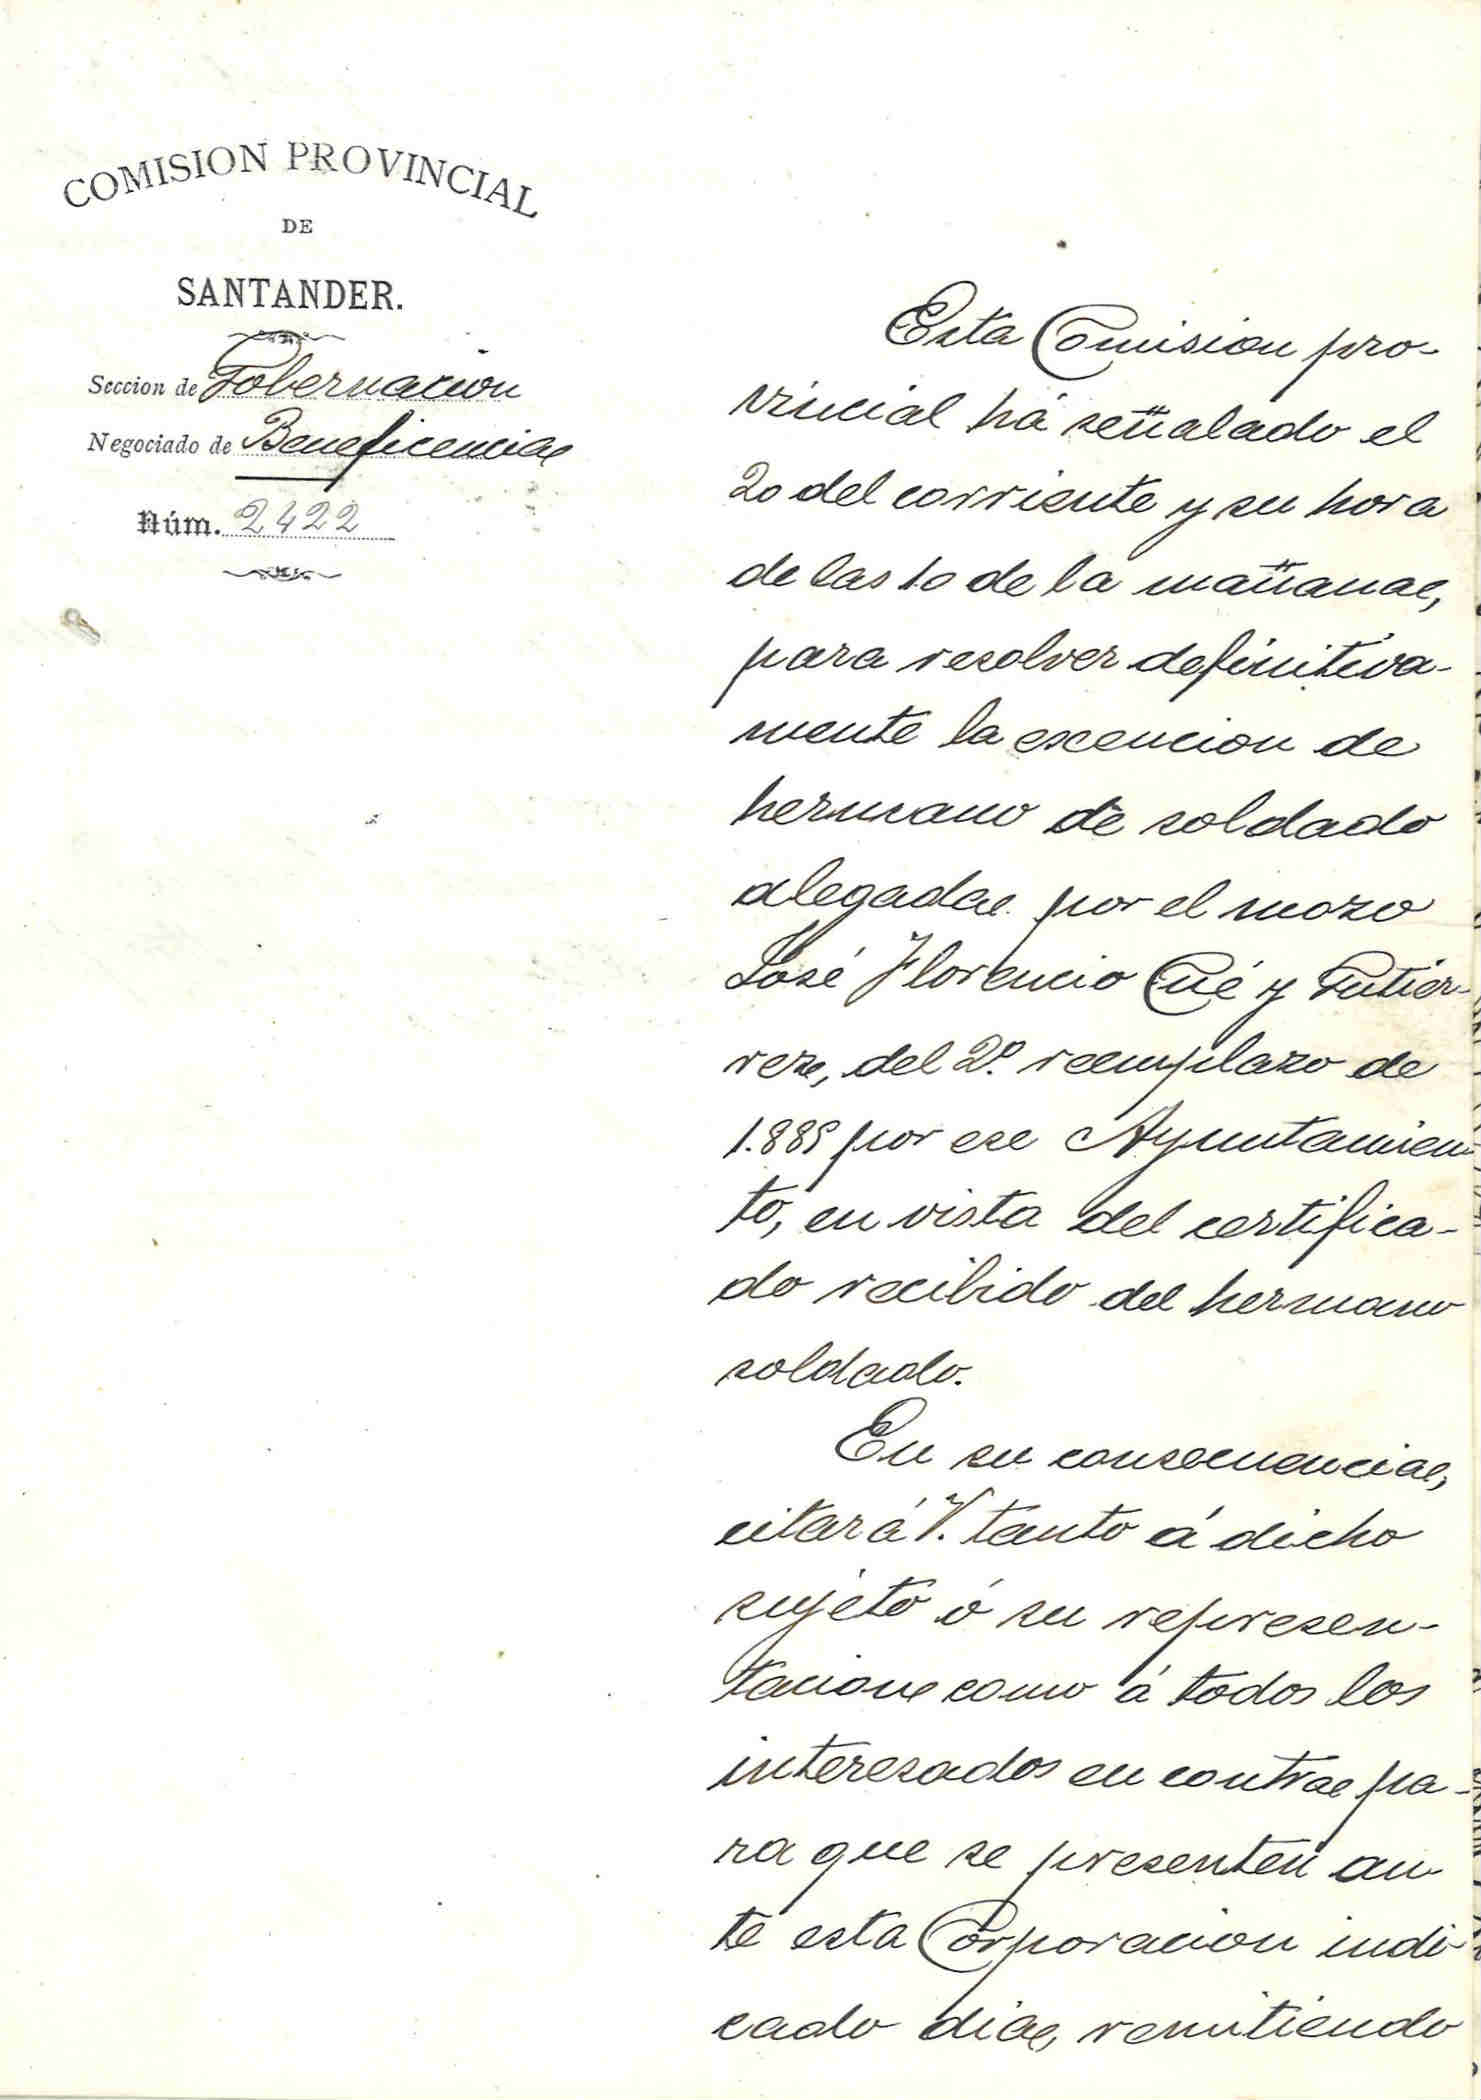 COMISION PROVINCIAL
DE
SANTANDER.
Seccion de Gobernacion
Negociado de Beneficencia
Núm. 2422
Esta Comision pro-
vincial há señalado el
20 del corriente y su hora
de las 10 de la mañana,
para resolver definitiva-
mente la escencion de
hermano de soldado
alegada por el mozo
José Florencio Cué y Gutier-
rez, del 2º. reemplazo de
1.885 por ese Ayuntamien-
to, en vista del certifica-
do recibido del hermano
soldado.
En su consecuencia,
citará V. tanto á dicho
sujeto ó su represen-
tacion como á todos los
interesados en contra pa-
ra que se presenten an-
te esta Corporacion indi-
cado dia, remitiendo